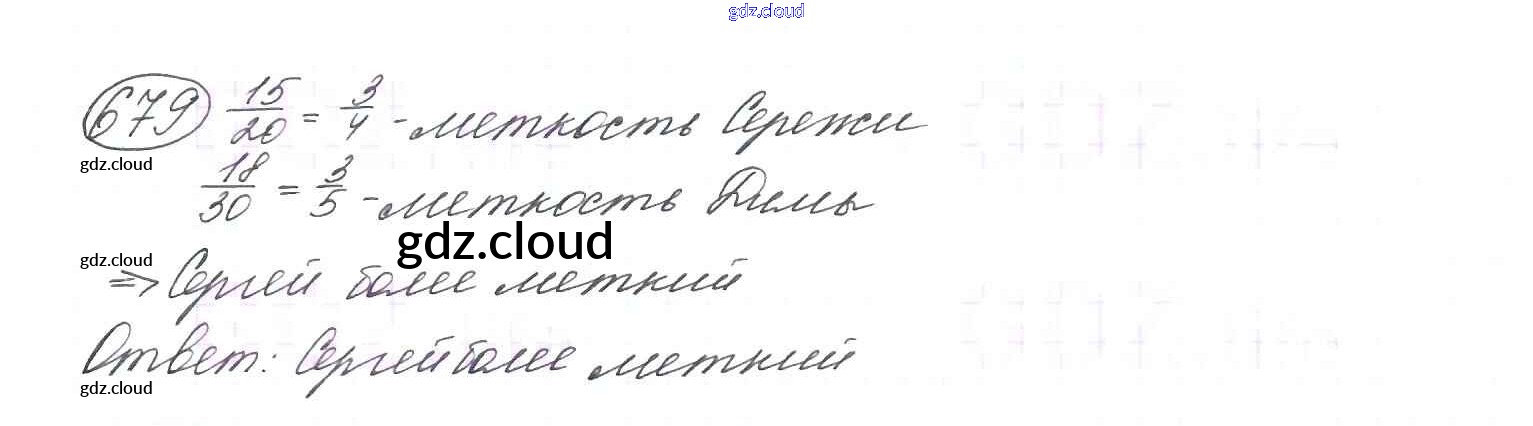 gdz.cloud
679 15/20 = 3/4 - меткость Сережи
gdz.cloud
18/30 = 3/5 - меткость Димы
gdz.cloud
gdz.cloud
=> Сергей более меткий
Ответ: Сергей более меткий
gdz.cloud